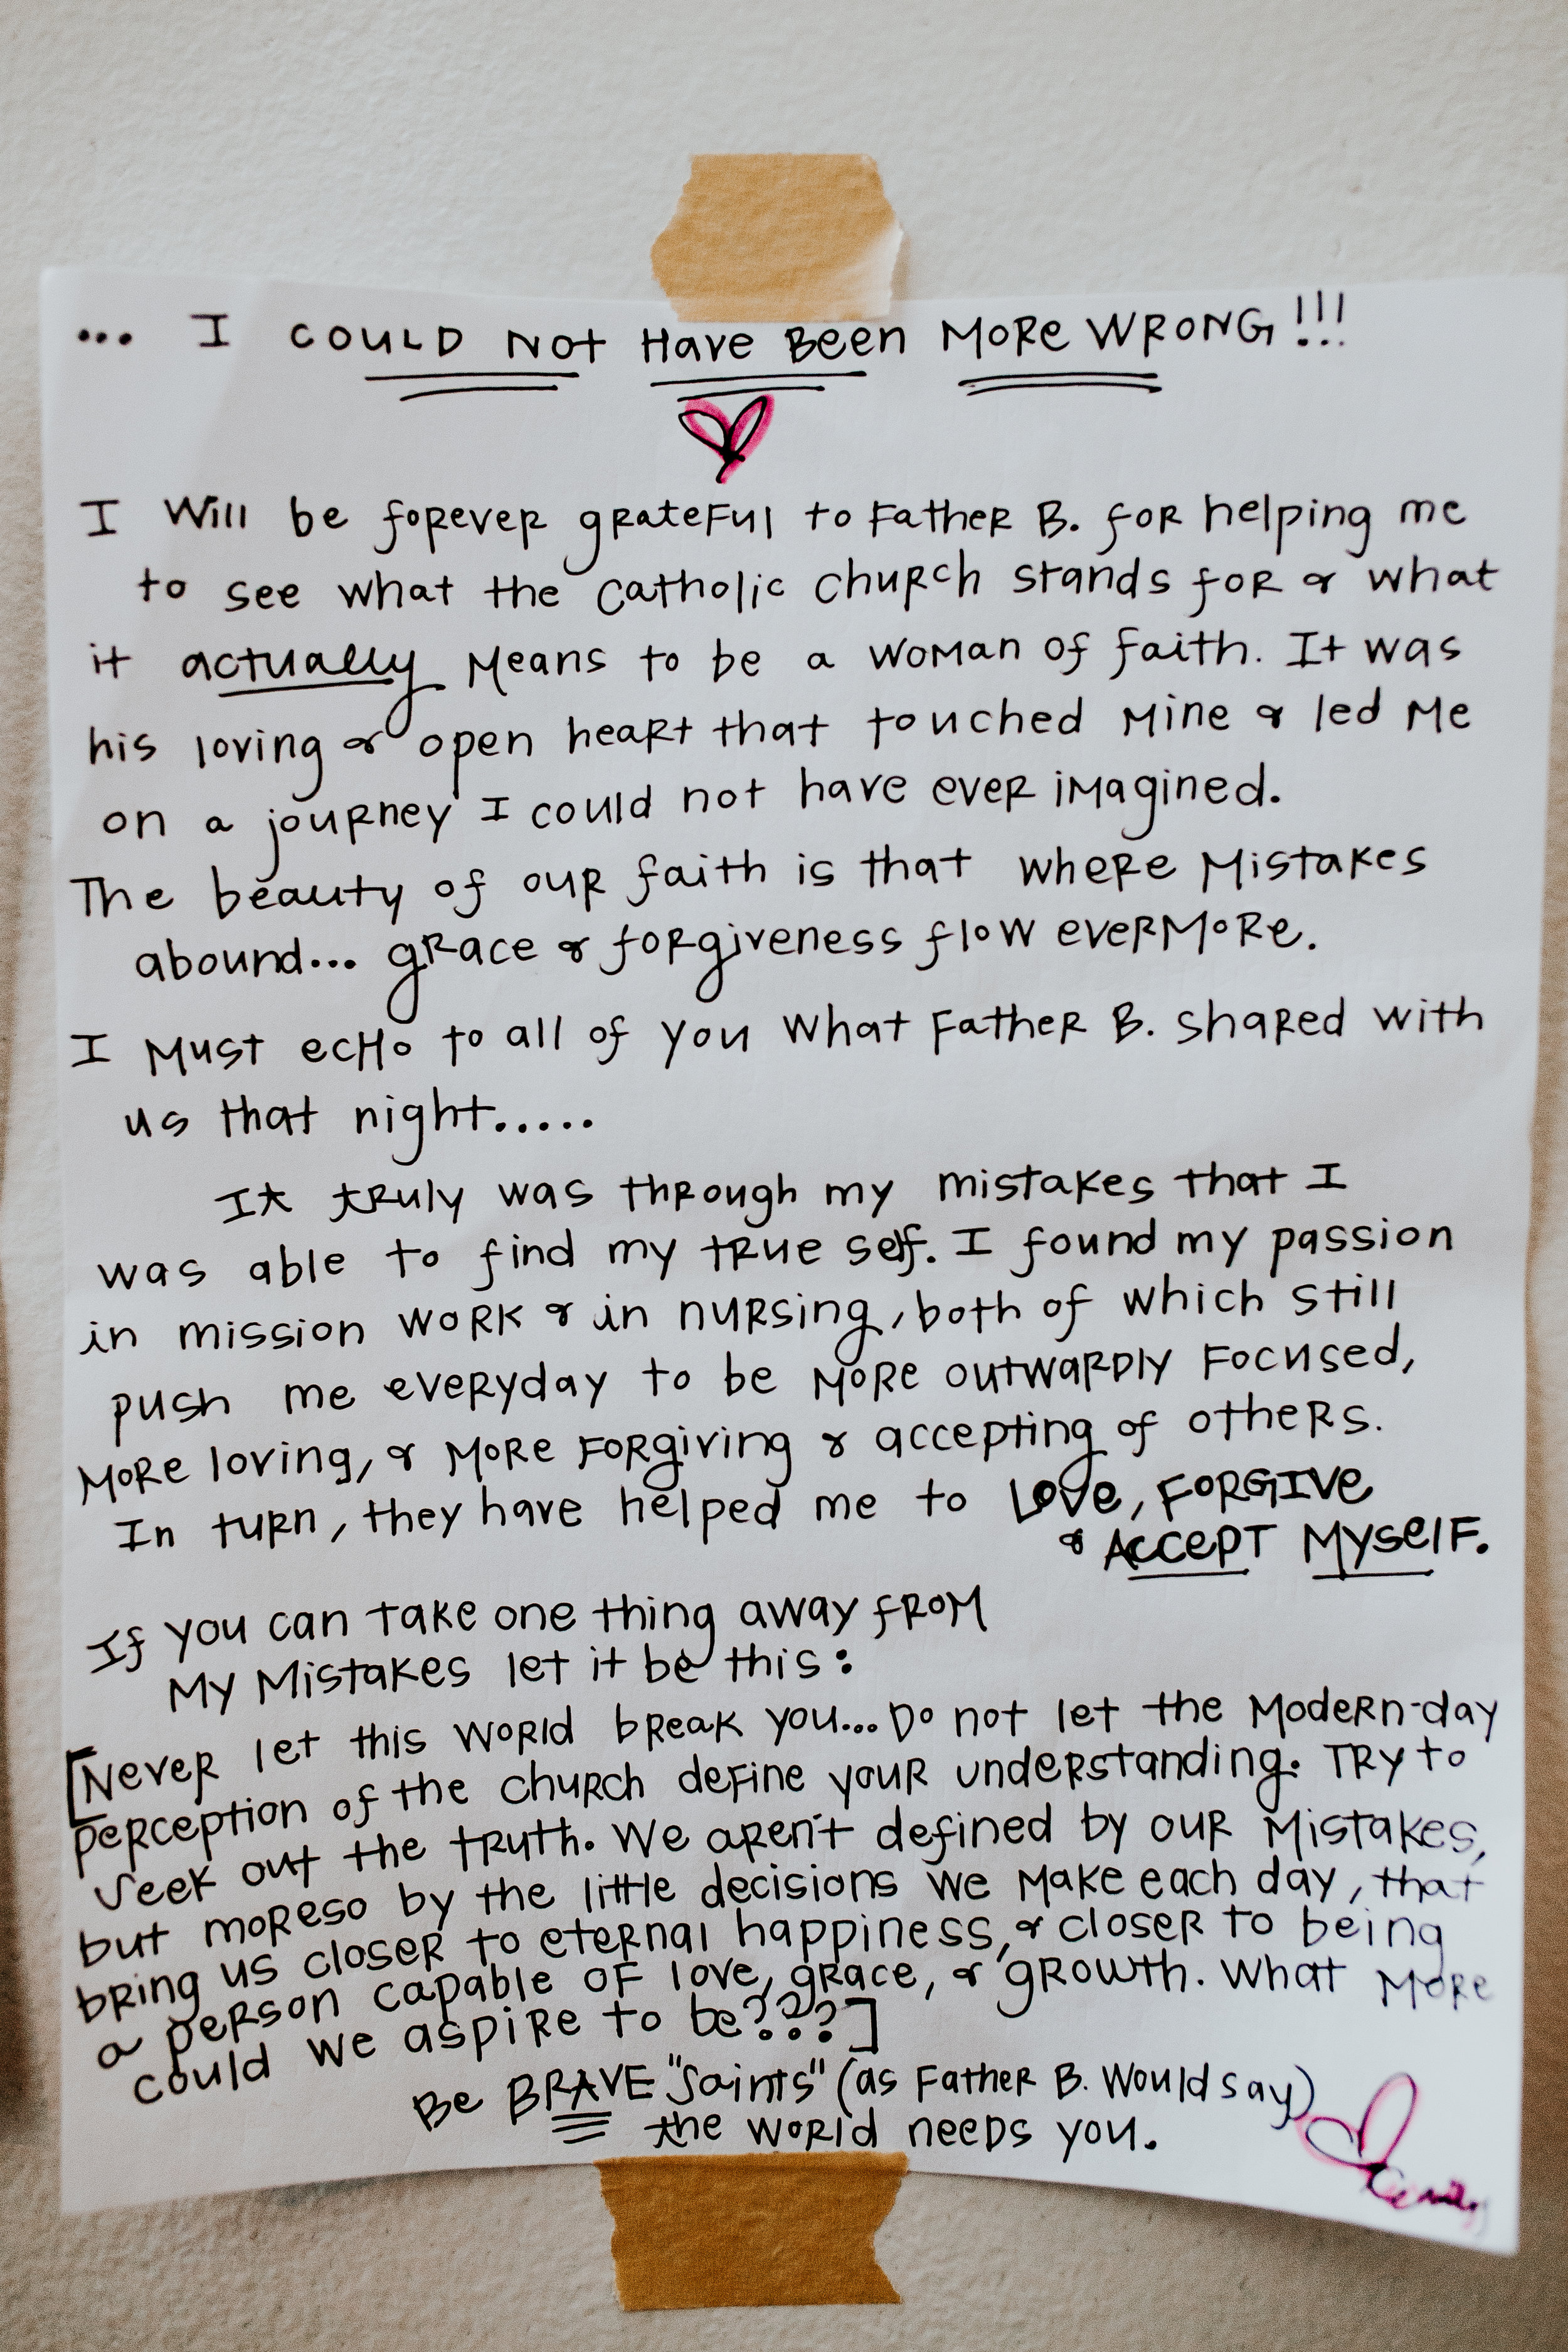 ... I COULD NOt Have Been MORe WRONG!!!
I Will be forever grateful to Father B. for helping me
to see what the Catholic Church stands for & what
it actually Means to be a woman of faith. It was
his loving & open heart that touched Mine & led Me
on a journey I could not have ever imagined.
The beauty of our faith is that where Mistakes
abound... grace & forgiveness flow evermore.
I Must echo to all of you what Father B. shared with
us that night.....
It truly was through my mistakes that I
was able to find my true self. I found my passion
in mission work & in nursing, both of which still
push me everyday to be More outwardly focused,
More loving, & More Forgiving & accepting of others.
In turn, they have helped me to Love, FORGIVe
& ACCEPT MYSelF.
If you can take one thing away from
My Mistakes let it be this:
[Never let this world break you... Do not let the Modern-day
perception of the church define your understanding. Try to
seek out the truth. We aren't defined by our Mistakes,
but moreso by the little decisions we Make each day, that
bring us closer to eternal happiness, & closer to being
a person capable of love, grace, & growth. What More
could we aspire to be???]
Be BRAVE "Saints" (as Father B. Would say)
the world needs you.